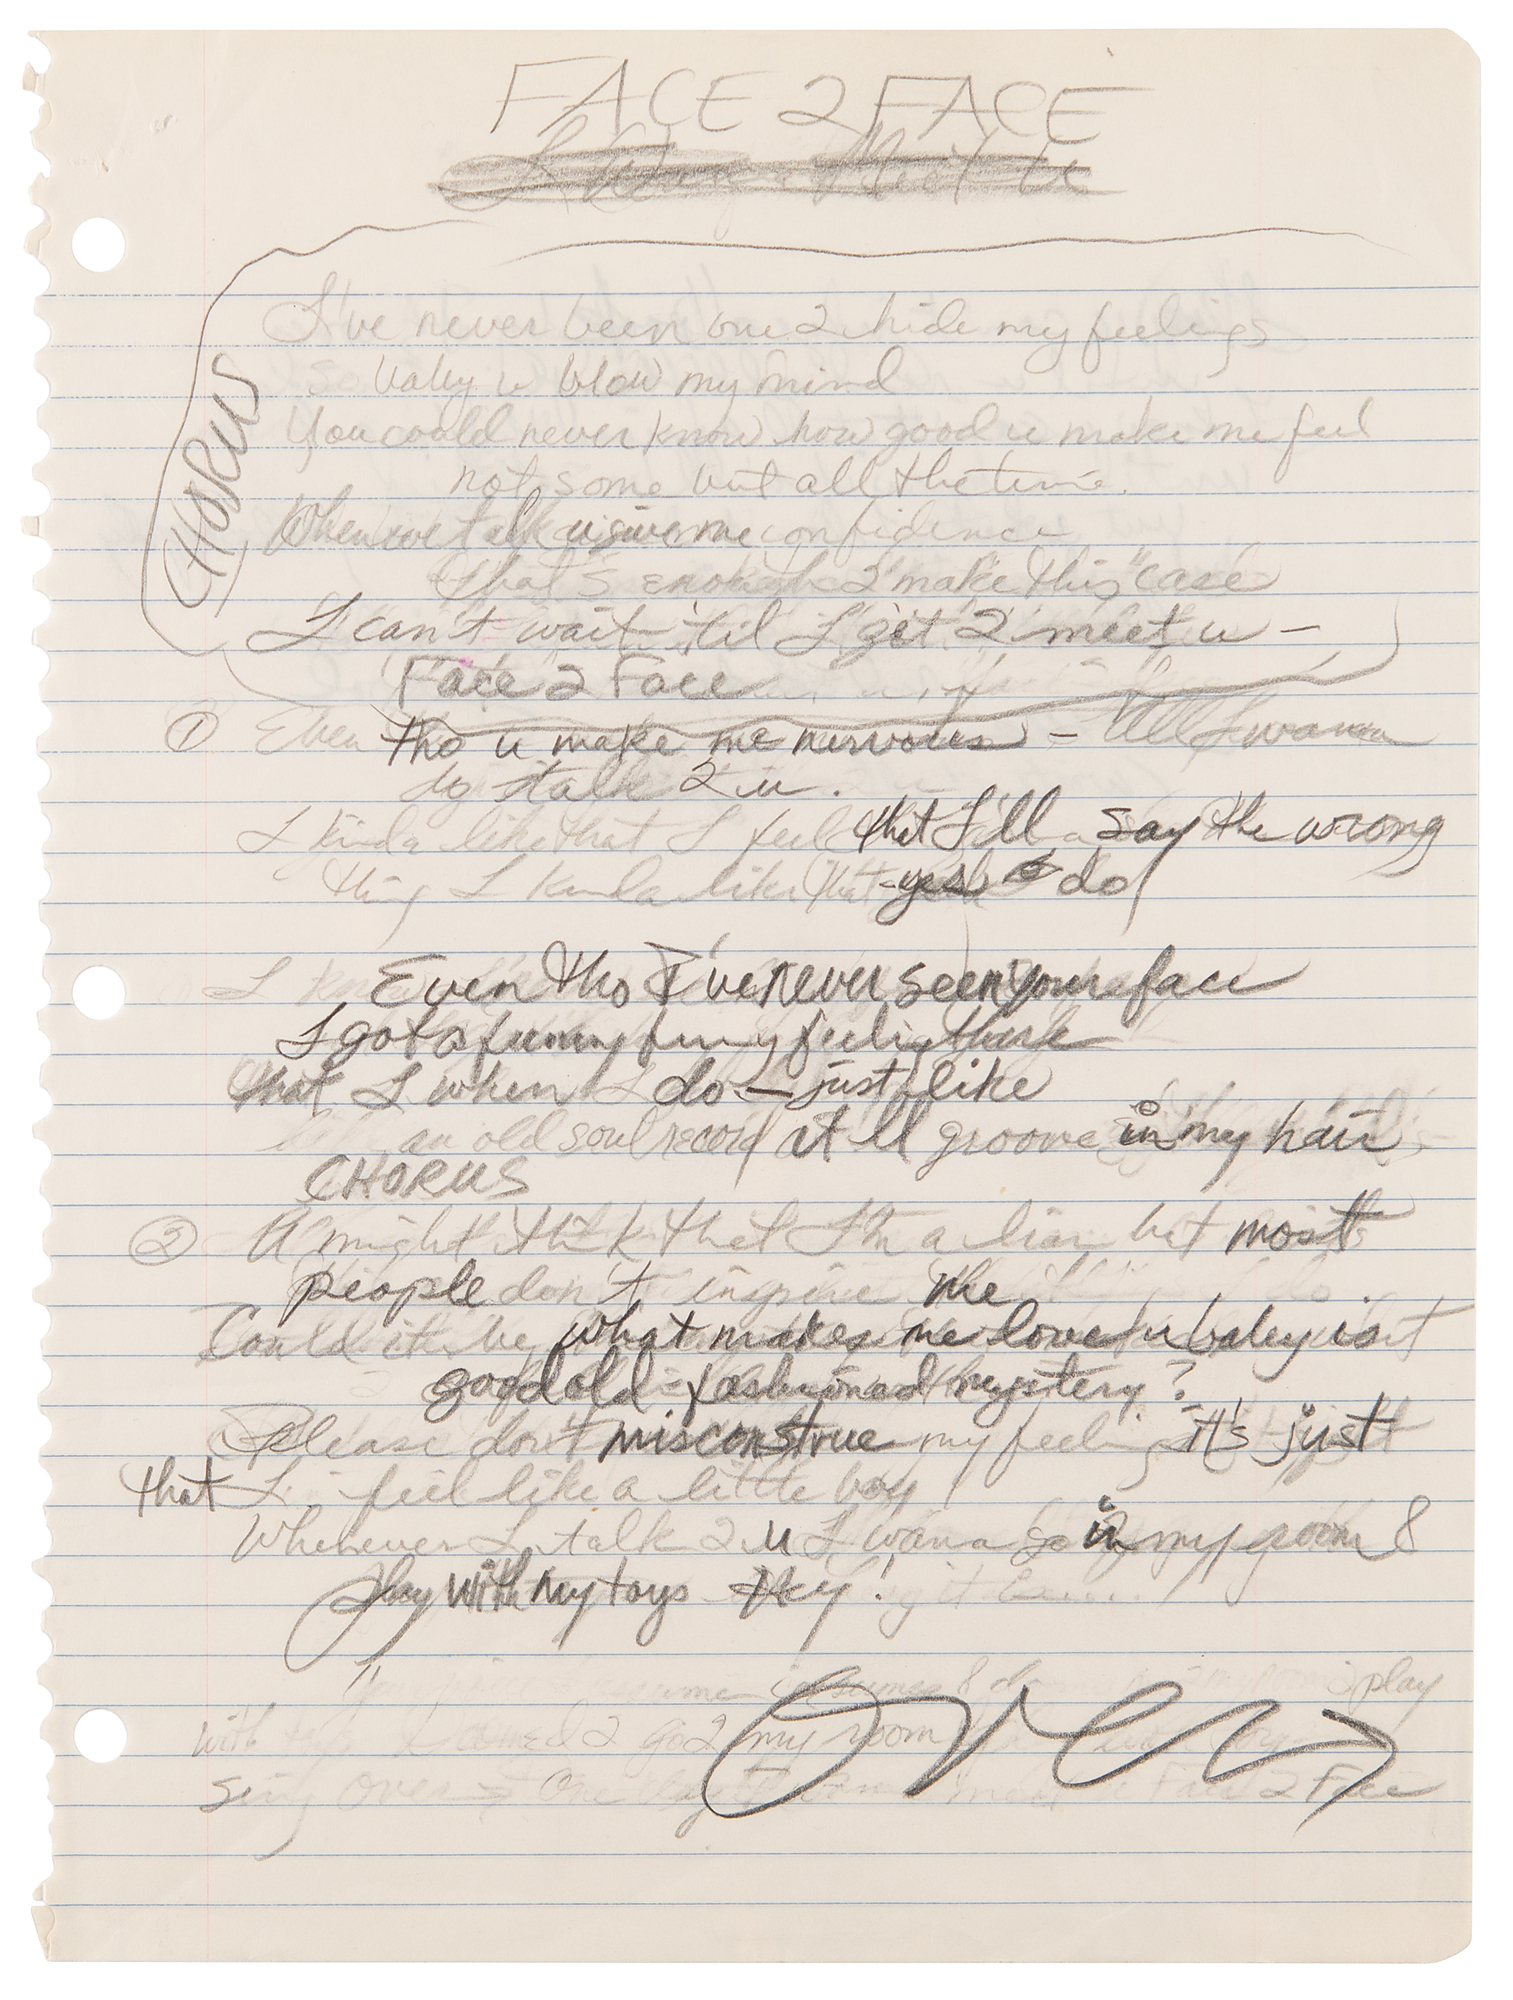 FACE 2 FACE
Meet U
I've never been one 2 hide my feelings
So baby u blow my mind
You could never know how good u make me feel
not some but all the time.
When we talk u give me confidence
that's enough 2 make this case
I can't wait 'til I get 2 meet u -
Face 2 Face
CHORUS
① Even tho u make me nervous - All I wanna
do is talk 2 u.
I kinda like that I feel that I'll say the wrong
thing I kinda like that - yes I do
Even tho I've never seen your face
I got a funny funny feeling
that I when I do - just like
an old soul record it'll groove in my hair
CHORUS
② U might think that I'm a liar but most
people don't inspire me
Could it be what makes me love u baby is
good old-fashioned mystery?
Please don't misconstrue my feelings it's just
that I feel like a little boy
Whenever I talk 2 u I wana go in my room &
play with my toys - Hey!
play
with 2 go 2 my room
Sing over Face 2 Face
Over →